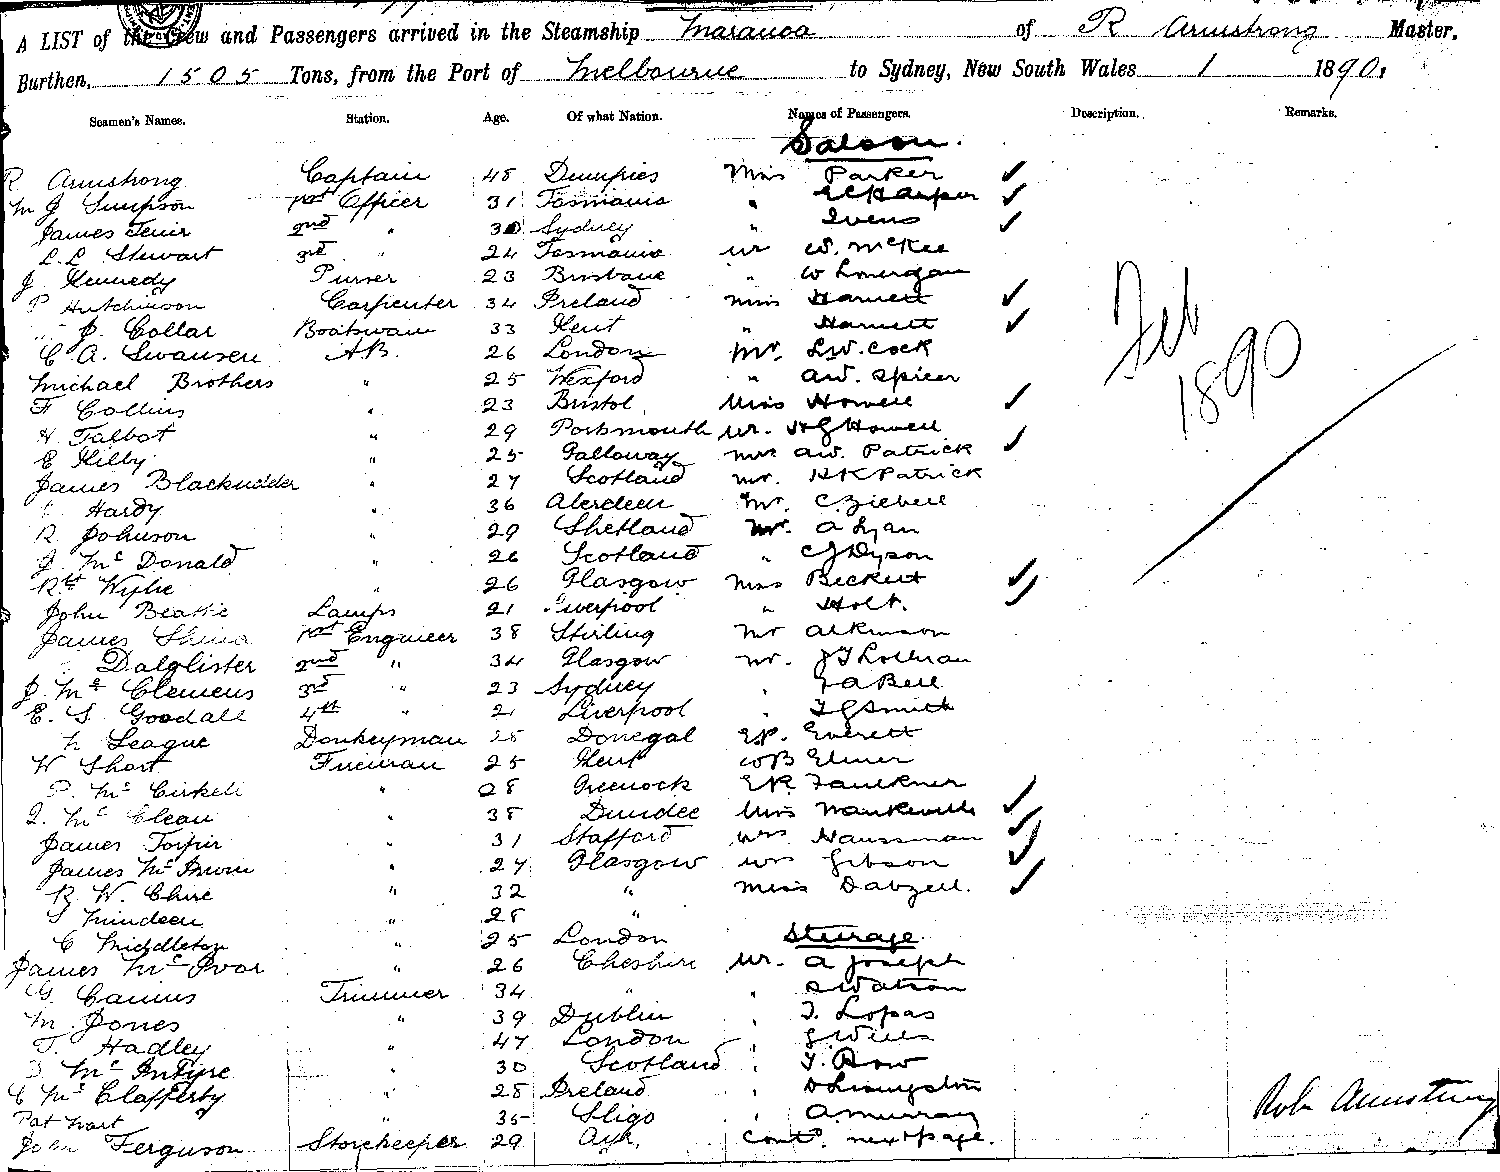 A LIST of the Crew and Passengers arrived in the Steamship Maranoa of R Armstrong Master,
Burthen, 1505 Tons, from the Port of Melbourne to Sydney, New South Wales 1 1890,
Seamen's Names. Station. Age. Of what Nation. Names of Passengers. Description. Remarks.
Saloon.
R Armstrong Captain 48 Dumfries Miss Parker
M J Simpson 1st Officer 31 Tasmania "
James 2nd " 30 Sydney "
L.L Stewart 3rd " 24 Tasmania Mr W. McKee
J Kennedy Purser 23 Brisbane " W Lonergan
P Hutchinson Carpenter 34 Ireland Miss Harnett
J. Collar Boatswain 33 Kent " Harnett
C. A. Swansen AB. 26 London Mr. L.W. Cock
Michael Brothers " 25 Wexford " A.W. Spicer
F Collins " 23 Bristol Miss Howell
H Talbot " 29 Portsmouth Mr. H G Howell
E Hilly " 25 Galloway Mrs A.W. Patrick
James " 27 Scotland Mr. R K Patrick
Hardy " 36 Aberdeen Mr. C. Ziebell
R. Johnson " 29 Shetland Mr. A Lyan
J. McDonald " 26 Scotland " C J Dyson
Rt Wylie " 26 Glasgow Miss Beckett
John Beattie Lamps 21 Liverpool " Holt.
James 1st Engineer 38 Stirling Mr Atkinson
Dalglister 2nd " 34 Glasgow Mr. J T
J. McClemens 3rd " 23 Sydney " A Bell
E. S. Goodall 4th " 21 Liverpool " T G Smith
League Donkeyman 28 Donegal E.P. Everett
W Short Fireman 25 Kent W B Elmer
P. McCirkell " 28 Greenock E R Faulkner
McClean " 38 Dundee Miss
James " 31 Stafford Mrs Haussman
James " 27 Glasgow Mrs Gibson
R. W. " 32 " Miss Dalzell.
" 28 "
C Middleton " 25 London Steerage
James McIvor " 26 Cheshire Mr. A Joseph
G Trimmer 34 " " Watson
M. Jones " 39 Dublin " T. Lopas
T. Hadley " 47 London " Wills
McIntyre " 30 Scotland " T. Row
C McClafferty " 28 Ireland " D Livingston
Pat Hart " 35 Sligo " A Murray
John Ferguson Storekeeper 29 Ayr. Contd. next page.
Feb
1890
Robt Armstrong